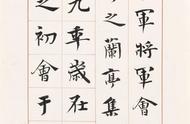 軍將軍會
之蘭亭集
九年歲在
之初會于